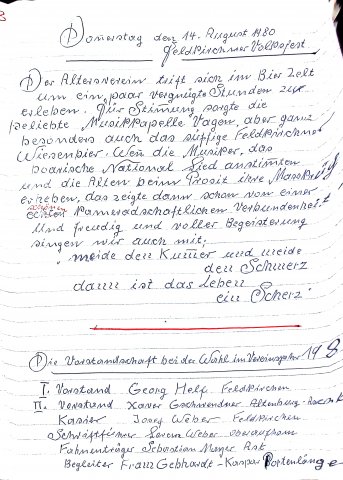 Donnerstag den 14. August 1980
Feldkirchner Volksfest
Der Altersverein trift sich im Bier Zelt
um ein paar vergnügte Stunden zu
erleben. Für Stimung sorgte die
beliebte Musikkapelle Vagen, aber ganz
besonders auch das süffige Feldkirchner
Wiesenbier. Wen die Musiker, das
boarische National Lied anstimten
und die Alten beim Prosit ihre Masskrüg
erheben, das zeigte dann schon von einer
echten kameradschaftlichen Verbundenheit
Und freudig und voller Begeisterung
singen wir auch mit:
meide den Kumer und meide
den Schmerz
dann ist das Leben
ein Scherz
Die Vorstandschaft bei der Wahl im Vereinsjahr 198
I. Vorstand Georg Helf Feldkirchen
II. Vorstand Xaver Gschwendner Altenburg
Kasier Josef Weber Feldkirchen
Schriftführer Lorenz Weber Oberaufham
Fahnenträger Sebastian Mayer
Begleiter Franz Gebhardt - Kaspar